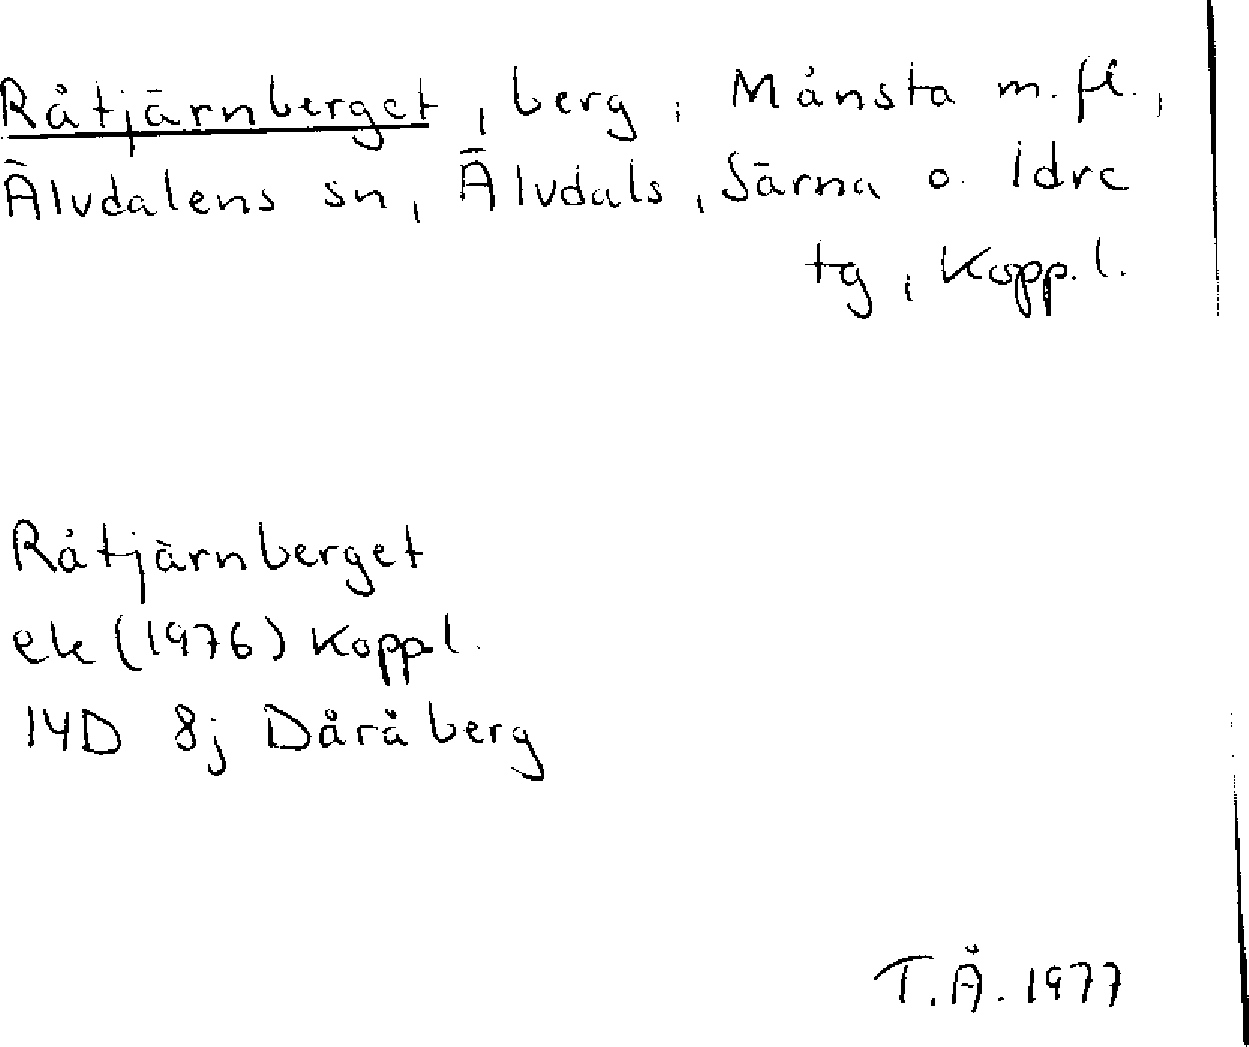 Råtjärnberget, berg, Månsta m.fl.,
Älvdalens sn, Älvdals, Särna o. Idre
tg, Kopp.l.
Råtjärnberget
ek (1976) Kopp.l.
14D 8j Dåråberg
T.Å. 1977